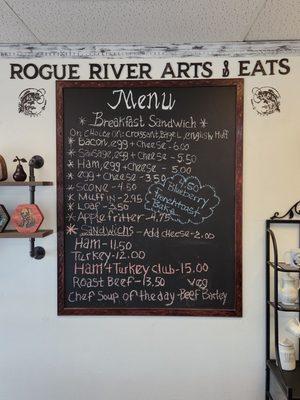 ROGUE RIVER ARTS & EATS
Menu
* Breakfast Sandwich *
On Choice in: croissant, Bagel, english Muff
* Bacon, egg + cheese - 6.00
* Sausage, egg + cheese - 5.50
* Ham, egg + cheese - 5.50
* egg + cheese - 3.50
* Scone - 4.50
* Muffin - 2.95
* Loaf - 3.50
* Apple fritter - 4.75
Blueberry
breakfast
cake
* Sandwichs - Add cheese - 2.00
Ham - 11.50
Turkey - 12.00
Ham + Turkey club - 15.00
Roast Beef - 13.50 veg
Chef Soup of the day - Beef Barley